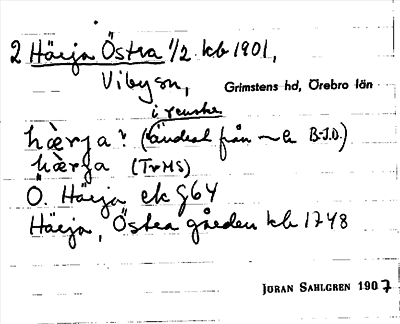 2 Härja Östra 1/2 kb 1901,
Viby sn,
Grimstens hd, Örebro län
i renskr
hæ̀rja? (ändrat från ~a B-J.O.)
hæ̀rja (TrHS)
Ö. Härja ek G64
Härja, Östra gården kb 1748
JÖRAN SAHLGREN 1907